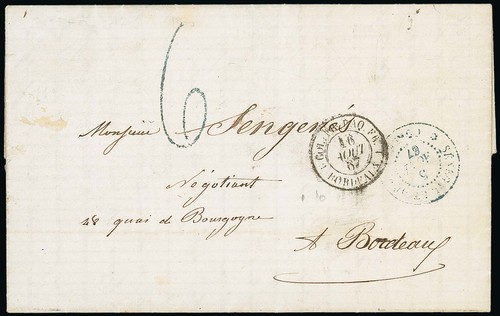 6
Monsieur Sengenès
Négotiant
28 quai de Bourgogne
A Bordeaux
COL. FR. PAQ. FR.
16
AOUT
67
BORDEAUX
SÉNÉGAL
67